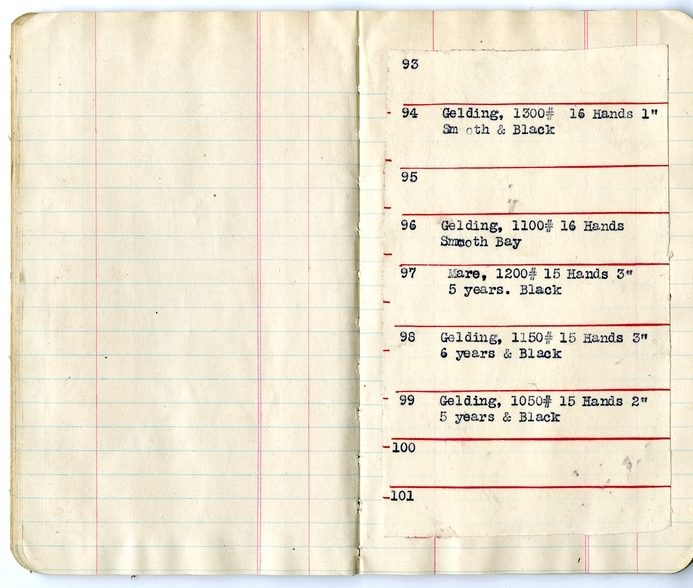 93
94 Gelding, 1300# 16 Hands 1"
Sm oth & Black
95
96 Gelding, 1100# 16 Hands
Smooth Bay
97 Mare, 1200# 15 Hands 3"
5 years. Black
98 Gelding, 1150# 15 Hands 3"
6 years & Black
99 Gelding, 1050# 15 Hands 2"
5 years & Black
100
101